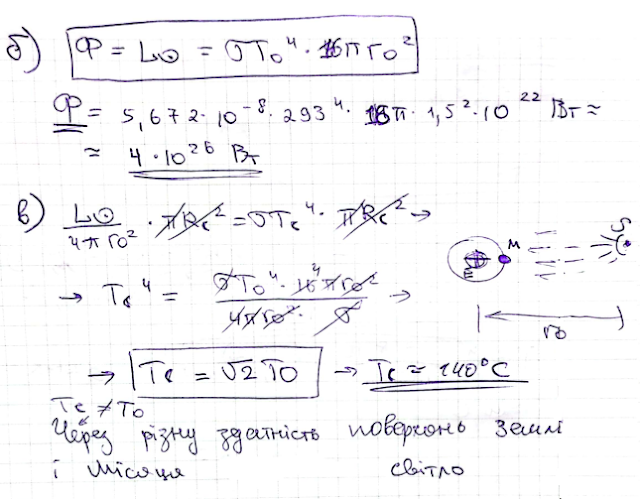 б) Ф = L☉ = σT₀⁴ · 16πr₀²
Ф = 5,672 · 10⁻⁸ · 293⁴ · 16π · 1,5² · 10²² Вт ≈
≈ 4 · 10²⁶ Вт
в) L☉/4πr₀² · πRє² = σTє⁴ · πRє² →
→ Tє⁴ = σT₀⁴ · 16⁴πr₀² / 4πr₀² · σ →
→ Tє = √2 T₀ → Tє ≈ 140°C
E M S
r₀
Tє ≠ T₀
Через різну здатність поверхонь Землі
і Місяця світло